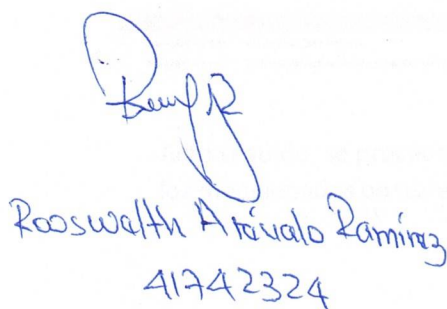 Rooswalth Arévalo Ramírez
41742324